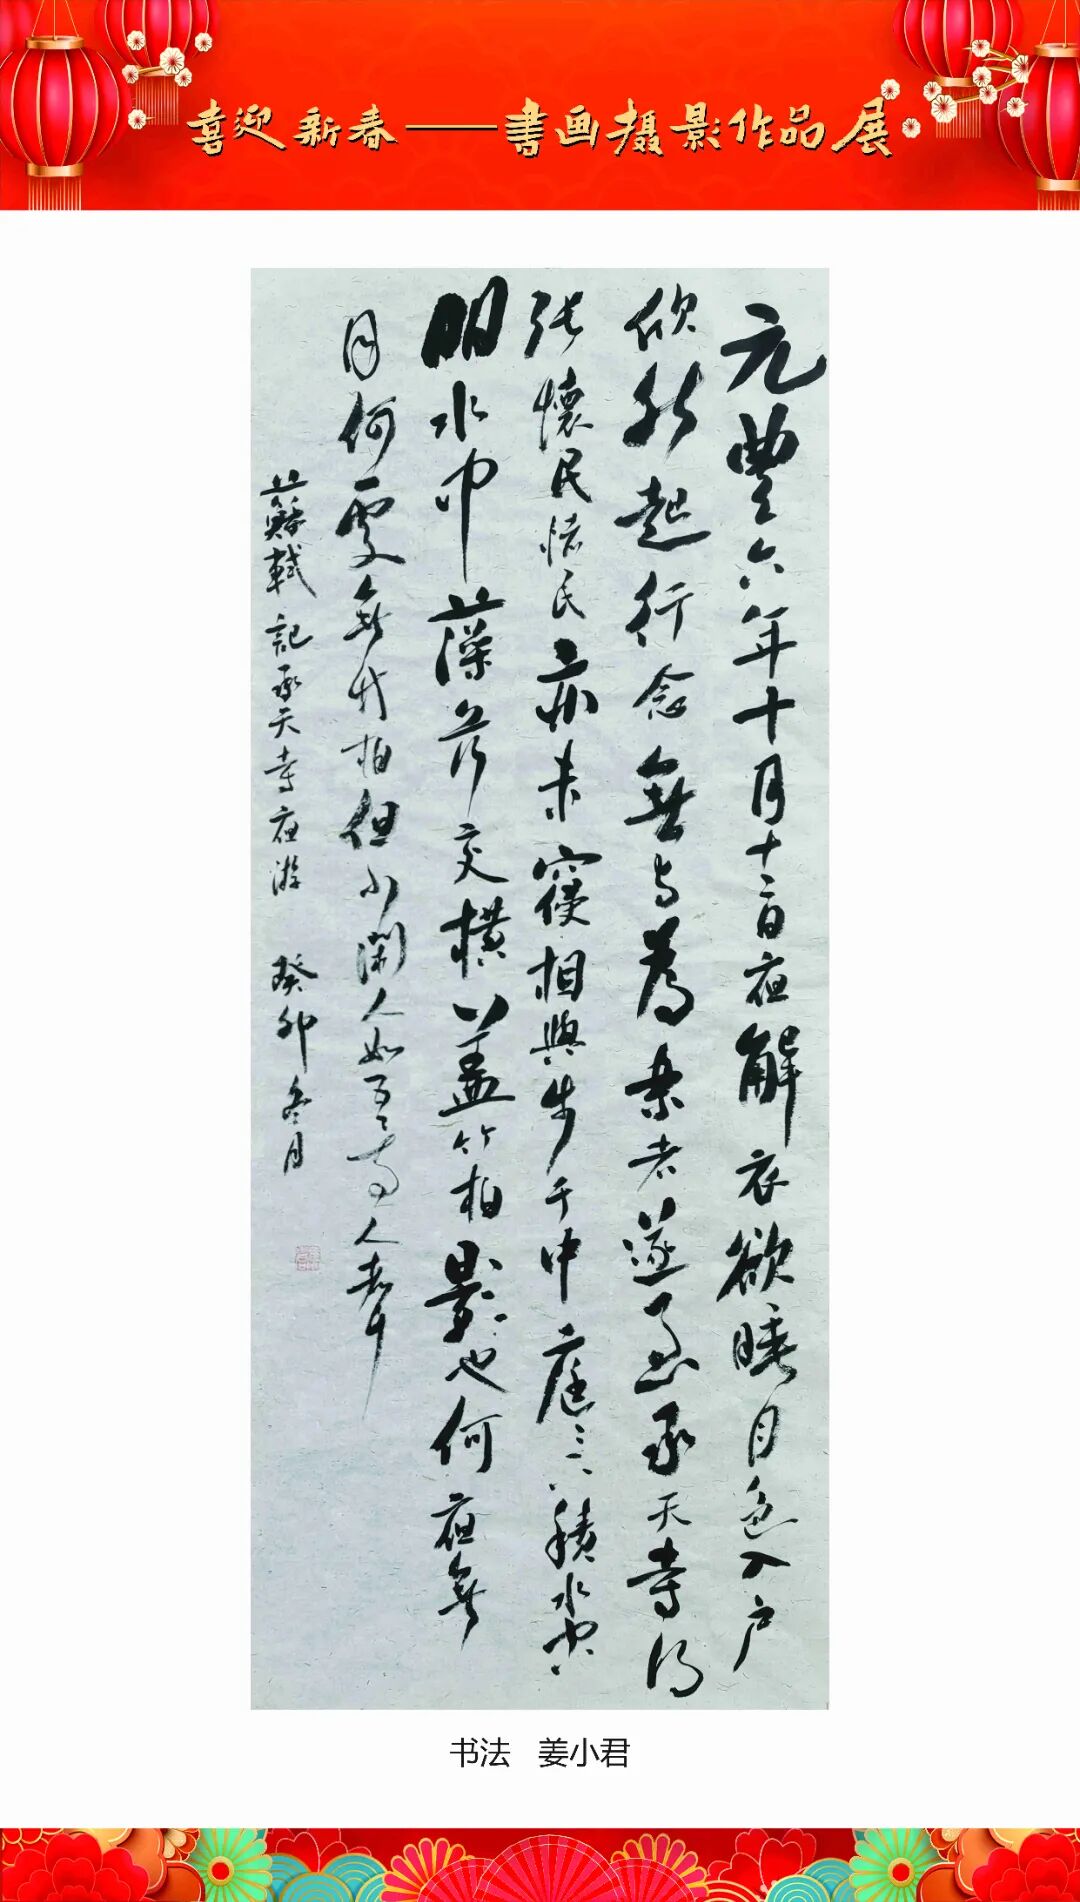 喜迎新春——书画摄影作品展
元豐六年十月十二日夜解衣欲睡月色入户
欣然起行念無与為樂者遂至承天寺
張懷民懷民亦未寢相與步于中庭々下積水空
明水中藻荇交橫蓋竹柏影也何夜無
月何處無竹柏但少閑人如吾兩人者耳
蘇軾記承天寺夜游 癸卯冬月
书法 姜小君